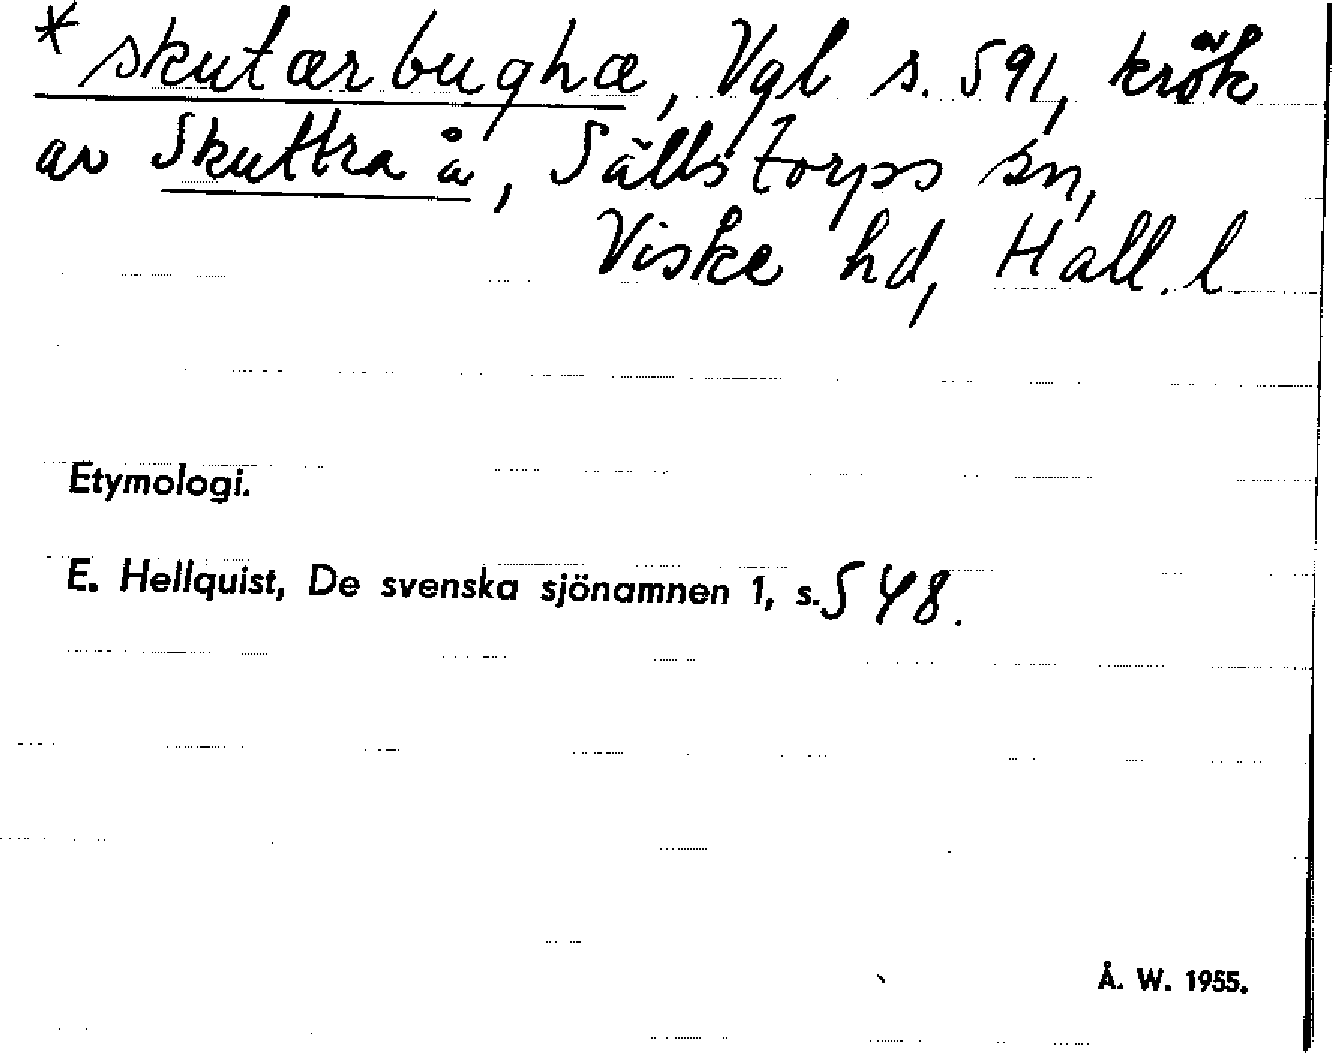 * skutærbughæ, Vgl s. 591, krök
av Skuttra å, Sällstorps sn,
Viske hd, Hall. l
Etymologi.
E. Hellquist, De svenska sjönamnen 1, s. 548.
Å. W. 1955.